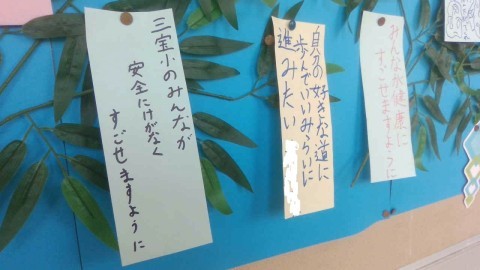 三宝小のみんなが
安全にけがなく
すごせますように
自分の好きな道に
歩んでいいみらいに
進みたい
みんなが健康に
すごせますように